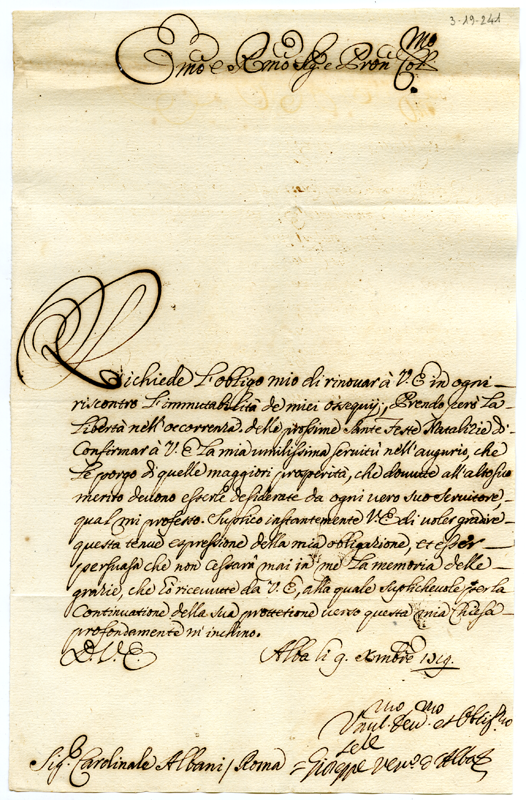 3-19-241
Emo e Rmo Sig.e Pron Col.mo
Richiede l'obligo mio di rinouar à V.E. in ogni
riscontro l'immutabilità de miei ossequij; Prendo però la
libertà nell'occorrenza delle prossime Sante Feste Natalizie di
Confirmar à V.E. la mia umilissima seruitù nell'augurio, che
le porgo di quelle maggiori prosperità, che douute all'alto suo
merito deuono esserle desiderate da ogni uero suo Seruitore,
qual mi professo. Suplico instantemente V.E. di uoler gradire
questa tenue espressione della mia obligazione, et esser
persuasa che non cessarà mai in me la memoria delle
grazie, che hò riceuute da V.E., alla quale suplicheuole per la
Continuatione della sua prottetione uerso questa mia Chiesa
profondamente m'inchino.
D.V.E.
Alba li 9. Xmbre 1719.
Vmil.mo Deu.mo et Oblig.mo
Giuseppe Vesc.o d'Alba
Sig.r Cardinale Albani / Roma